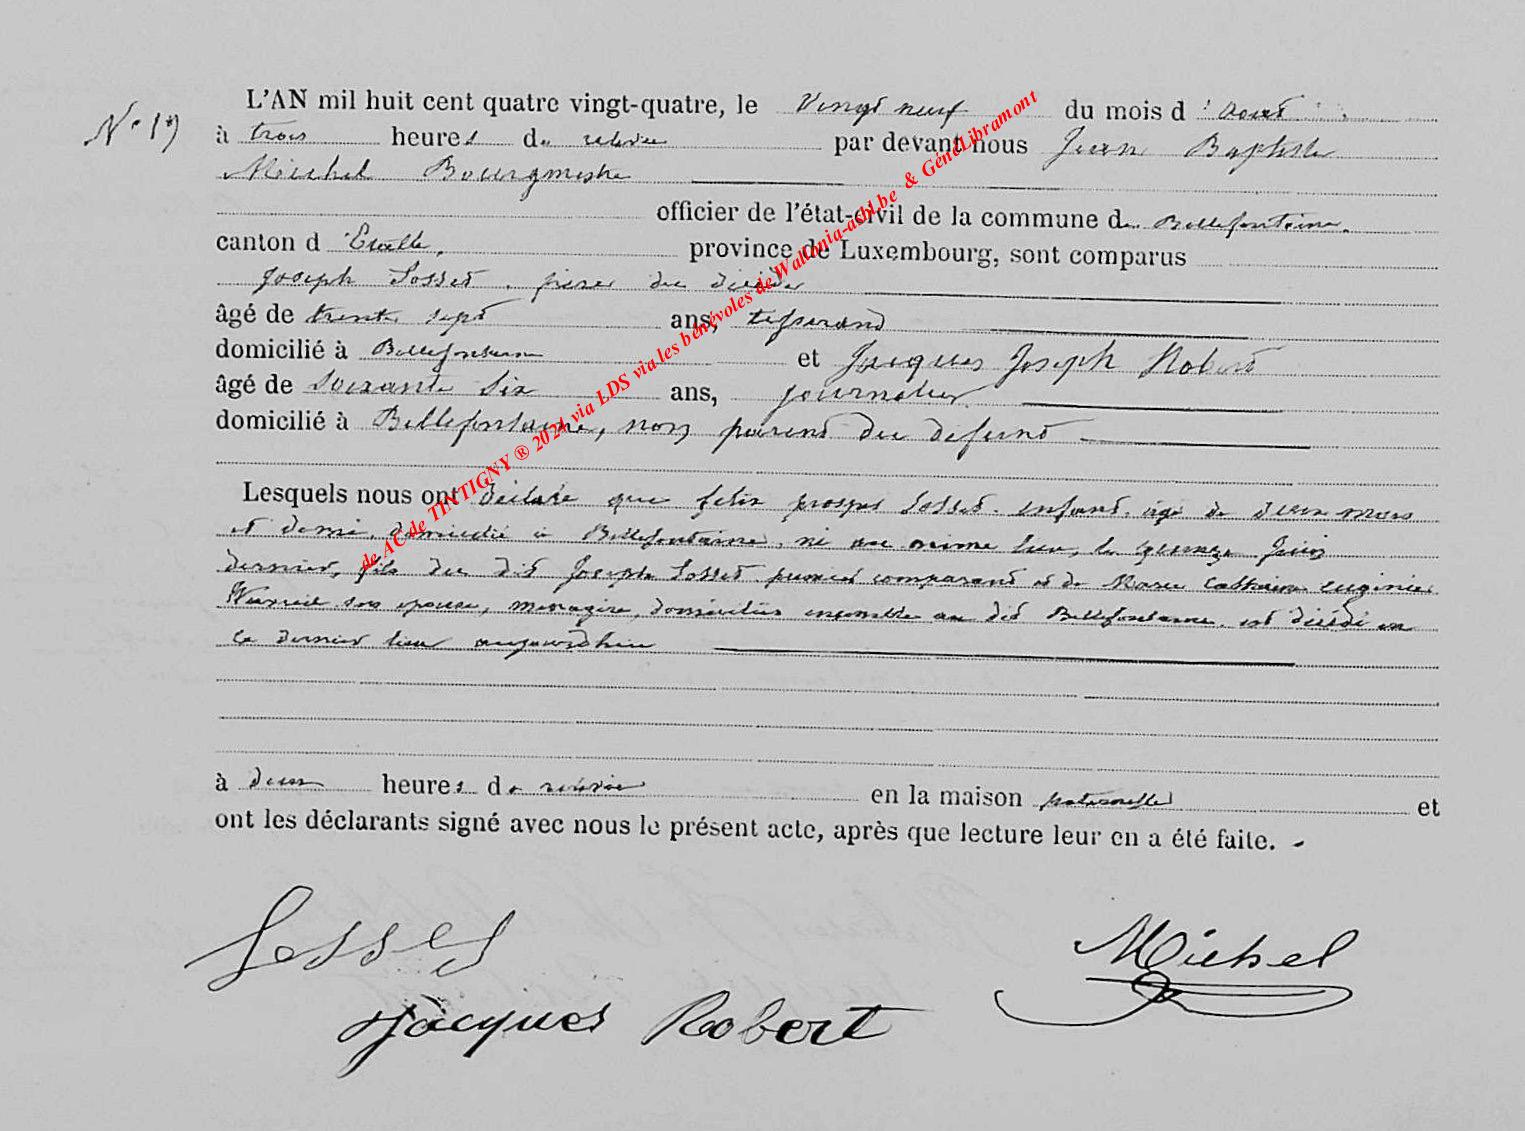 N° 19
L'AN mil huit cent quatre vingt-quatre, le Vingt neuf du mois d'août
à trois heures de relevée par devant nous Jean Baptiste
Michel Bourgmestre
officier de l'état-civil de la commune de Bellefontaine,
canton d'Etalle, province de Luxembourg, sont comparus
Joseph Sosset, père du décédé
âgé de trente sept ans, tisserand
domicilié à Bellefontaine et Jacques Joseph Robert
âgé de soixante six ans, journalier
domicilié à Bellefontaine, non parent du defunt
Lesquels nous ont déclaré que felix prosper Sosset, enfant, agé de deux mois
et demi, domicilié à Bellefontaine, né au même lieu, le quinze Juin
dernier, fils du dit Joseph Sosset premier comparant et de Marie Catherine eugénie
son epouse, menagère, domiciliés ensemble au dit Bellefontaine, est décédé en
ce dernier lieu aujourd'hui
à deux heures de relevée en la maison paternelle et
ont les déclarants signé avec nous le présent acte, après que lecture leur en a été faite.
Sosset
Michel
Jacques Robert
de AC de TINTIGNY ® 2024 via LDS via les bénévoles de Wallonia-asbl.be & GénéLibramont